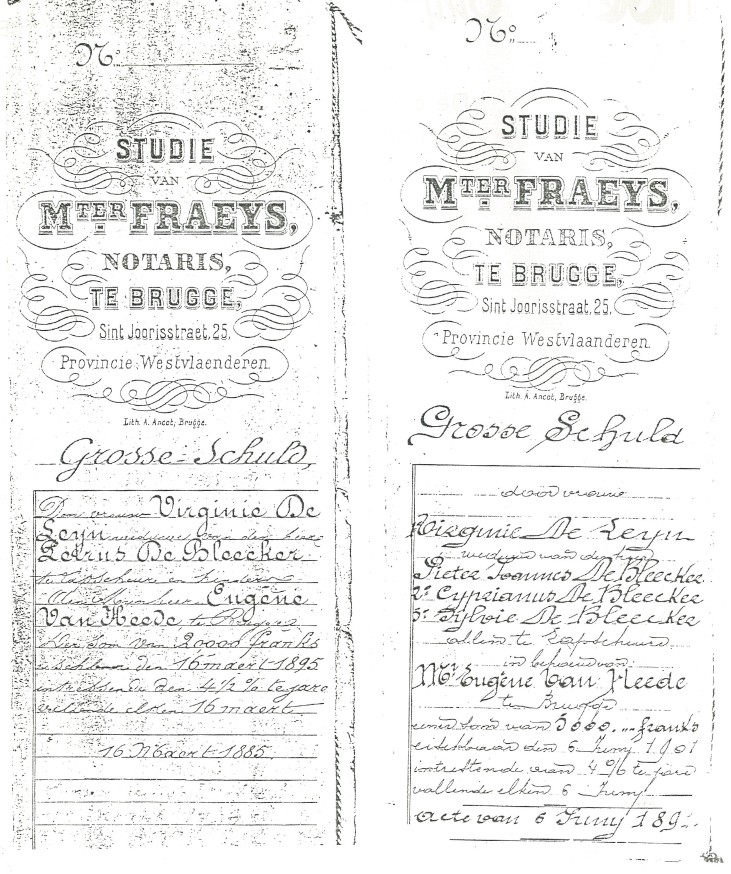 No
STUDIE
VAN
MTER FRAEYS,
NOTARIS,
TE BRUGGE,
Sint Joorisstraet, 25.
Provincie Westvlaenderen.
Lith. A. Ancot, Brugge.
Grosse-Schuld,
Door vrouw Virginie De
Leyn weduwe van den heer
Petrus De Bleecker
te Lapscheure en kinders
Aen Mynheer Eugène
Van Heede te Brugge
Der som van 20000 franks
den 16 maert 1895
intressende den 4 1/2 % te jare
vallende elken 16 maert
16 Maert 1885.
No
STUDIE
VAN
MTER FRAEYS,
NOTARIS,
TE BRUGGE,
Sint Joorisstraat, 25.
Provincie Westvlaanderen.
Lith. A. Ancot, Brugge.
Grosse Schuld
door vrouw
Virginie De Leyn
weduwe van den heer
Pieter Joannes De Bleecker
2° Cyprianus De Bleecker
3° Sylvie De Bleecker
allen te Lapscheure
in behoeve van
Mr Eugene Van Heede
te Brugge
eener som van 5000.,, franks
eischbaar den 6 Juny 1901
intrestende aan 4 % te jare
vallende elken 6 Juny
acte van 6 Juny 189